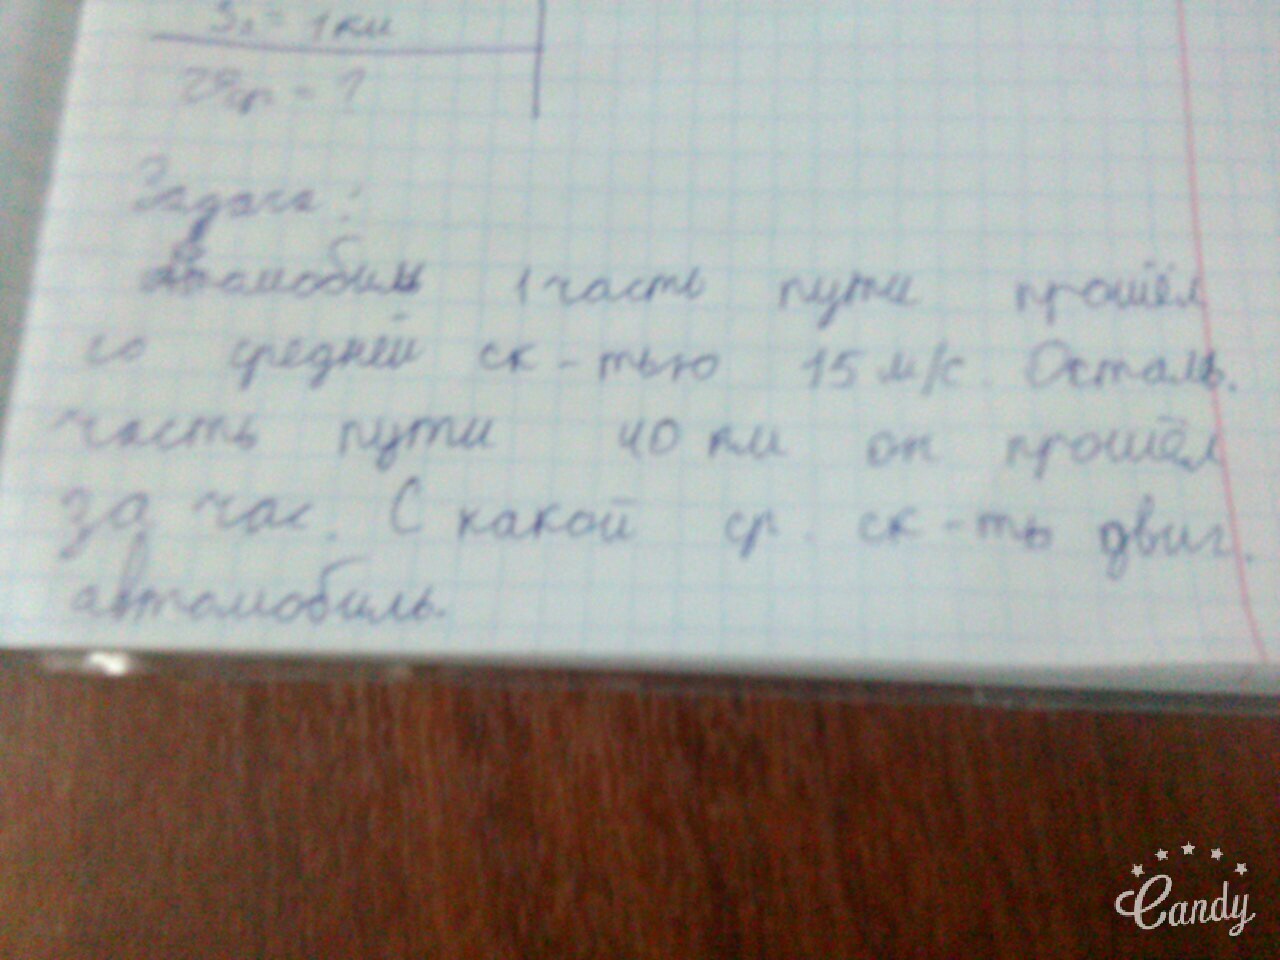 S₂ = 1км
𝜗ср = ?
Задача:
Автомобиль 1 часть пути прошёл
со средней ск-тью 15 м/с. Осталь.
часть пути 40 км он прошёл
за час. С какой ср. ск-ть двиг.
автомобиль.
Candy